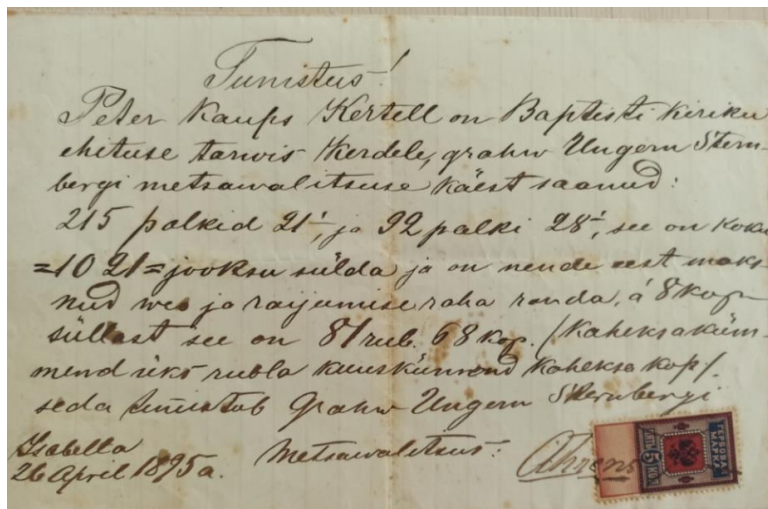 Tunistus!
Peter Kaups Kertell on Baptisti kiriku
ehituse tarwis Kerdele, grahw Ungern Stern-
bergi metsawalitsuse käest saanud:
215 palkid 21', ja 92 palki 28', see on koku
=1021= jooksu sülda ja on nende eest maks-
nud weo ja raijumise raha randa, á 8 kop
süllast see on 81 rub. 68 kop. /Kaheksaküm-
mend üks rubla kuuskümmend kaheksa kop/.
seda tunistab Grahw Ungern Sternbergi
Isabella
26 April 1895 a.
Metsawalitsus:
Ahrens
ГЕРБОВАЯ
МАРКА
5